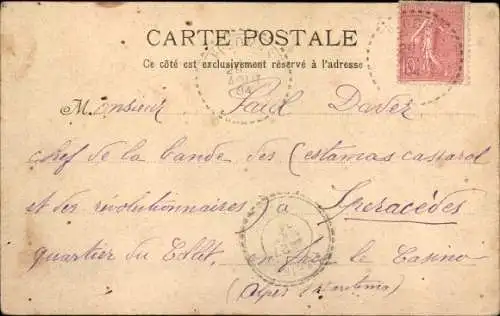 CARTE POSTALE
Ce côté est exclusivement réservé à l'adresse
Monsieur Paul Daver
chef de la bande des (estamas cassarol
et des révolutionnaires) a Speracèdes
quartier du en face le Casino
(Alpes Maritimes)